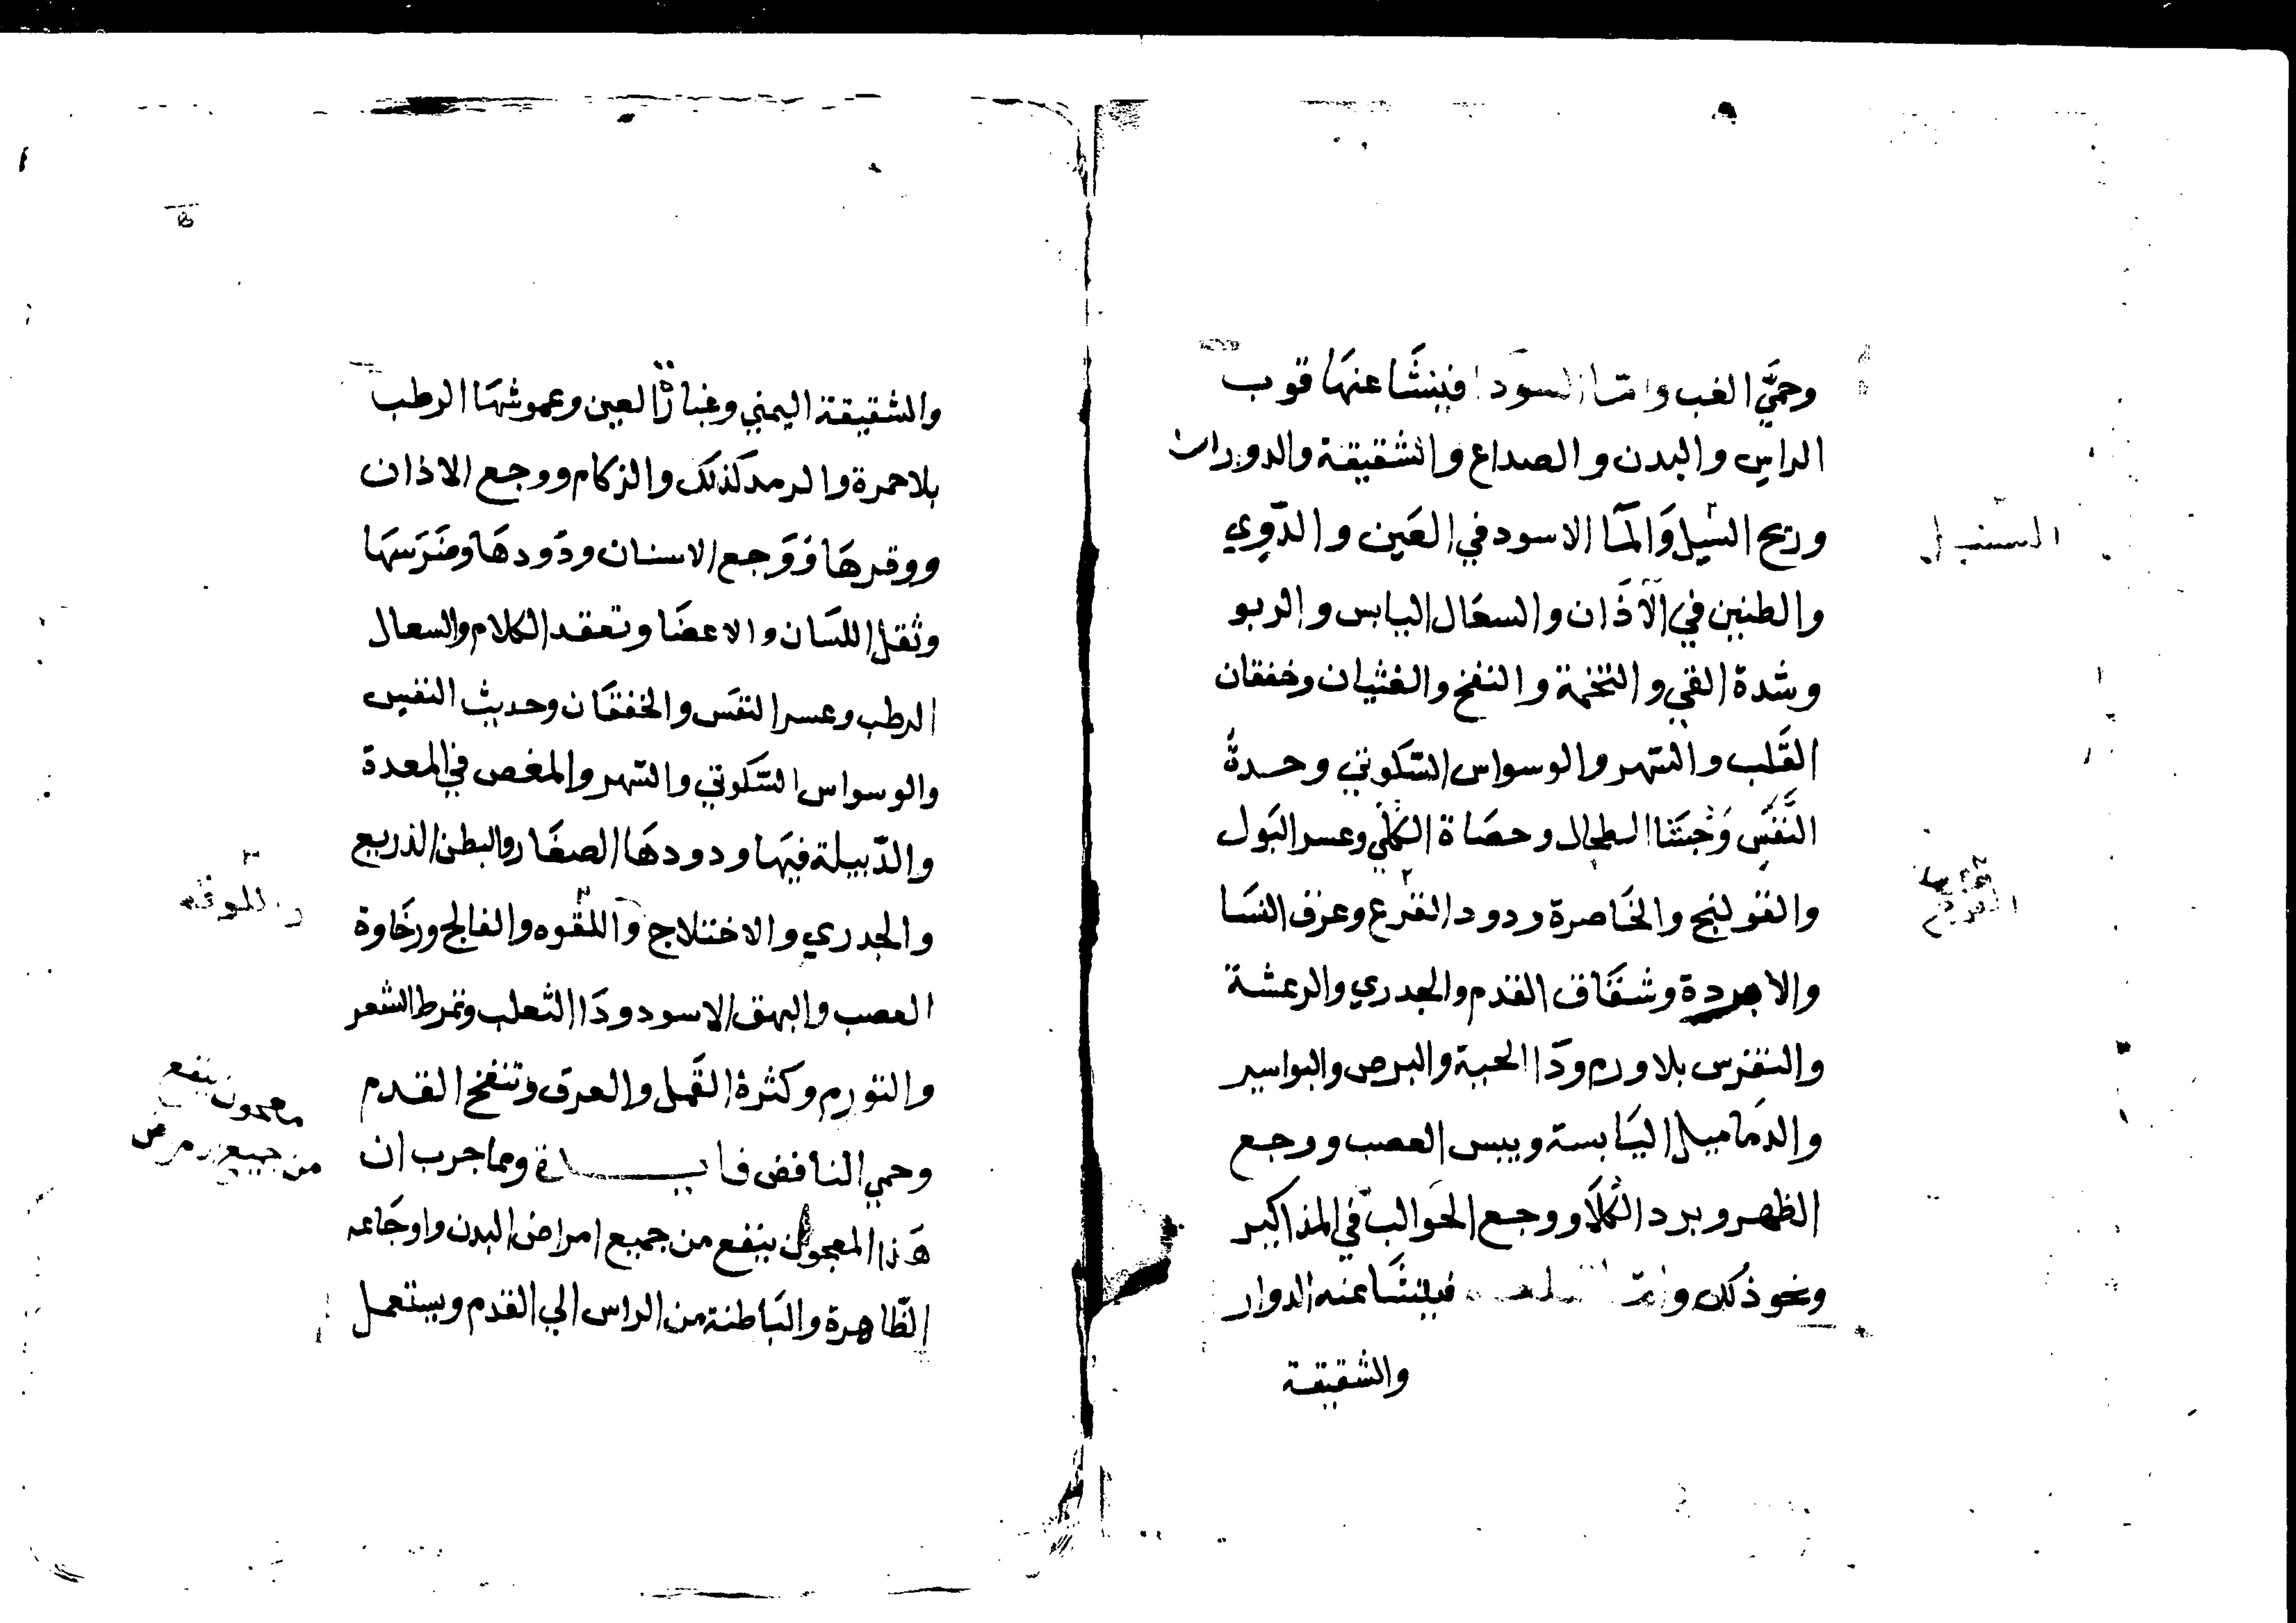 وحمَّي الغب واما السودا فينشَّا عنهَا قوب
الراس والبدن والصداع والشقيقة والدوران
وريح السّيل وَالمَا الاسود في العَين والدّوي
والطنين في الآذَان والسعَال اليابس والربو
وشدة القي والتخمة والنفخ والغثيان وخفقان
القَلب والسّهر والوسواس السّكوتي وحدةُ
النَّفَس وَخبَثنا الطحال وحصَاة الكلي وعسر البَول
والقولنج والخَاصرة ودود القرع وعرف النسَا
والابردة وشقَاق القدم والجدري والرعشة
والنقرس بلا ورم ودَا الحية والبرص والبواسير
والدمَاميل اليَابسة ويبس العصب ووجع
الظهر وبرد الكلَا ووجع الحَوالب في المذاكير
ونحو ذلك فينشَّا عنه الدوار
والشقيقة
والشقيقة اليمني وغبارة العين وعموشهَا الرطب
بلا حمرة والرمد كذلك والزكام ووجع الاذان
ووقرهَا وَوَجع الاسنان ودَودهَا وضَرَسهَا
وثقل اللسَان والاعضَا وتعقد الكلام والسعال
الرطب وعسر النفَس والخفقَان وحديث النفس
والوسواس السّكوتي والسّهر والمغص في المعدة
والدّبيلة فيهَا ودودهَا الصغَار والبطن الذريع
والجدري والاختلاج واللقوه والفالج ورخَاوة
العصب والبهق الاسود ودَا الثعلب وتمرط الشعر
والتورم وكثرة القَمل والعرق وتنفخ القدم
وحمي النافض فايدة ومما جرب ان
هَذا المعجون ينفع من جميع امراض البدن واوجَاعه
الظّاهرة والبَاطنة من الراس الي القدم ويستعمل
معجون ينفع
من جميع امراض